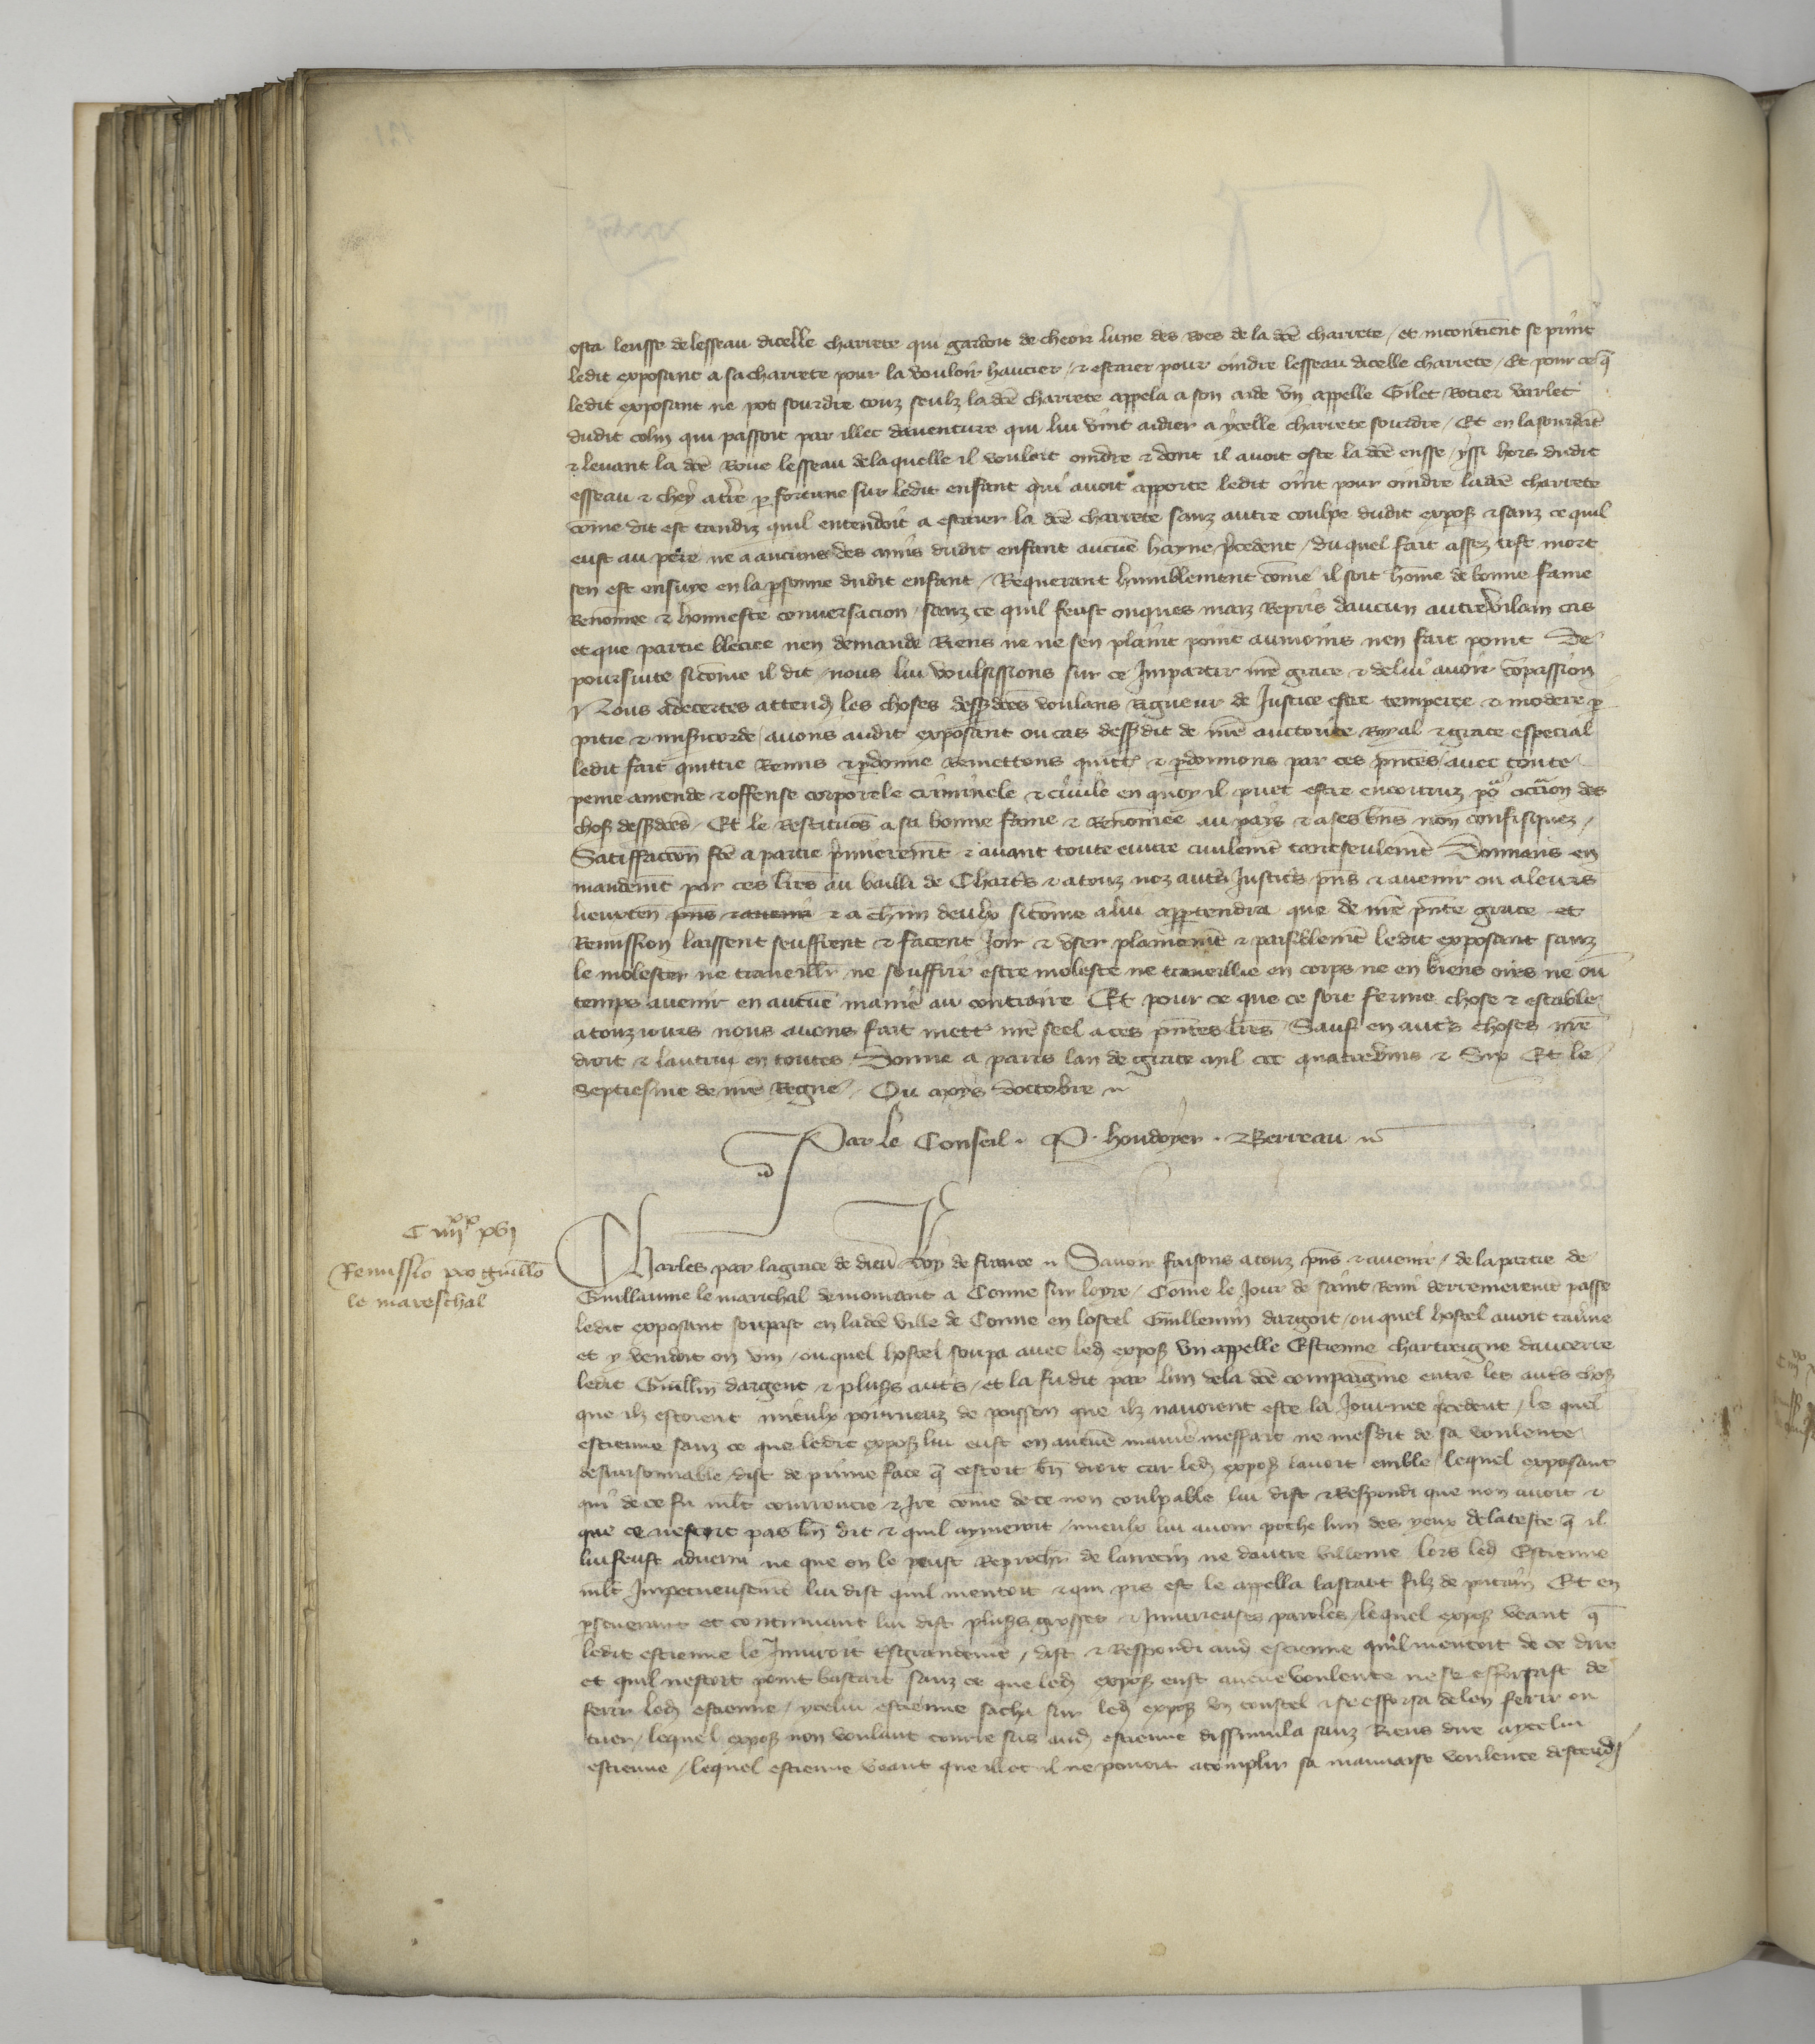 osta leusse de lesseau dicelle charrete qui gardoit de cheoir lune des roes de la dcē charrete / et incontinent se print
ledit exposant a sa charrete pour la vouloir haucier / & estaier pour oindre lesseau dicelle charrete / Et pour ce q̄
ledit exposant ne pot sourdre touz seulz la dcē charrete appela a son aide vn appelle Gilet Rotier varlet
dudit colin qui passoit par illec dauenture qui lui vint aidier a ycelle charrete sourdre / Et en la sourdāt
& leuant la dcē Roue lesseau de laquelle il vouloit oindre & dont il auoit oste la dcē eusse / yssi hors dudit
esseau & chey a tr̄e ꝑ fortune sur ledit enfant qui auoit apporte ledit oint pour oindre la dcē charrete
cōme dit est tandiz quil entendoit a estaier la dcē charrete sanz autre coulpe dudit expoſ & sanz ce quil
eust au pere ne a aucuns des amis dudit enfant aucūe hayne p̄cedent / du quel fait assez tost mort
sen est ensuye en la ꝑsonne dudit enfant / Requerant humblement cōme il soit hōme de bonne fame
Renōmee & honneste conuersacion / sanz ce quil feust onques maiz Repris daucun autre vilain cas
et que partie bleciee nen demande Riens ne ne sen plaint point aumoins nen fait point De
poursuite si cōme il dit / nous lui voulsissions sur ce Impartir nr̄e grace & de lui auoir cōpassion
Nous adecertes attenđ les choses dessᵘdcēs voulans Rigueur de Justice estre temperee & moderee ꝑ
pitie & misericorde / auons audit exposant ou cas dessᵘdit de nr̄e auctorite Royal & grace especial
ledit fait quittie Remis & ꝑdonne Remettons quitt̄ & ꝑdonnons par ces pn̄tes / auec toute
peine amende & offense corporele criminele & ciuile en quoy il puet estre encouruz po͛ occāion des
choſ dessᵘdcēs / Et le Restituōs a sa bonne fame & Renōmee au pais & a ses bn̄s non confisquez /
Satiffaccon̄ fcē a partie p̄mieremēt & auant toute euure ciuilemēt tantseulemēt Donnans en
mandemēt par ces lr̄es au bailli de Chart̄s & a touz noz aut̄s Justic̄s pn̄s & auenir ou a leurs
lieuxten̄ pn̄s & auenir & a ch̄un deulx si cōme a lui appartendra que de nr̄e pn̄te grace et
Remission laissent seuffrent & facent Joir & vser plainemēt & paisiblemēt ledit exposant sanz
le molester ne trauaill̄r ne souffrir estre moleste ne trauaillie en corps ne en biens ores ne ou
temps auenir en aucūe manie͛ au contraire Et pour ce que ce soit ferme chose & estable
a touziours nous auons fait mett̄ nr̄e seel a ces pn̄tes lr̄es Sauf en aut̄s choses nr̄e
droit & lautrui en toutes Donne a paris lan de grace mil ccc quatrevins & Six Et le
Septiesme de nr̄e Regne / Ou moys doctobre
Par le Conseil · P · houdoyer · & Berreau
C iiiiˣˣ xvj
Remissio pro guill̄o
le mareschal
Charles par la grace de dieu Roy de france Sauoir faisons a touz pn̄s & auenir / de la partie de
Guillaume le marichal demourant a Conne sur loyre / Cōme le Jour de saint Remi derrenieremt passe
ledit exposant soupast en la dcē ville de Conne en lostel Guillemin dargent / ou quel hostel auoit tau͛ne
et y vendoit on vin / ou quel hostel soupa auec leđ expoſ vn appelle Estienne chartreigne daucerre
ledit Guill̄in dargent & pluſs aut̄s / et la fu dit par lun de la dcē compaignie entre les aut̄s choſ
que ilz estoient mieulx pourueuz de poisson que ilz nauoient este la Journee p̄cedent / le quel
estienne sanz ce que ledit expoſ lui eust en aucūe manie͛ meffait ne mesdit de sa voulente
desraisonnable / dist de prime face q̄ cestoit bn̄ droit car leđ expoſ lauoit emble / lequel exposant
qui de ce fu mlt̄ courroucie & Ire cōme de ce non coulpable lui dist & Respondi que non auoit &
que ce nestoit pas bn̄ dit & quil aymeroit mieulx lui auoir poche lun des yeux de la teste q̄ il
lui feust aduenu ne que on le peust Reproch̄r de larrecin ne dautre villenie lors leđ Estienne
mlt̄ Impetueusemēt lui dist quil mentoit & qui pis est le appella bastart filz de putain Et en
ꝑseuerant et continuant lui dist pluſs grosses & Iniurieuses paroles / lequel expoſ veant q̄
ledit estienne le Iniurioit si grandemēt / dist & Respondi auđ estienne quil mentoit de ce dire
et quil nestoit point bastart sanz ce que leđ expoſ eust aucūe voulente ne se efforsast de
ferir leđ estienne / ycelui estienne sacha sur leđ expoſ vn coustel & se efforsa de len ferir ou
tuer / lequel expoſ non voulant courre sus auđ estienne dissimula sanz Riens dire a ycelui
estienne / lequel estienne veant que illec il ne pouoit acomplir sa mauuaise voulente descendi